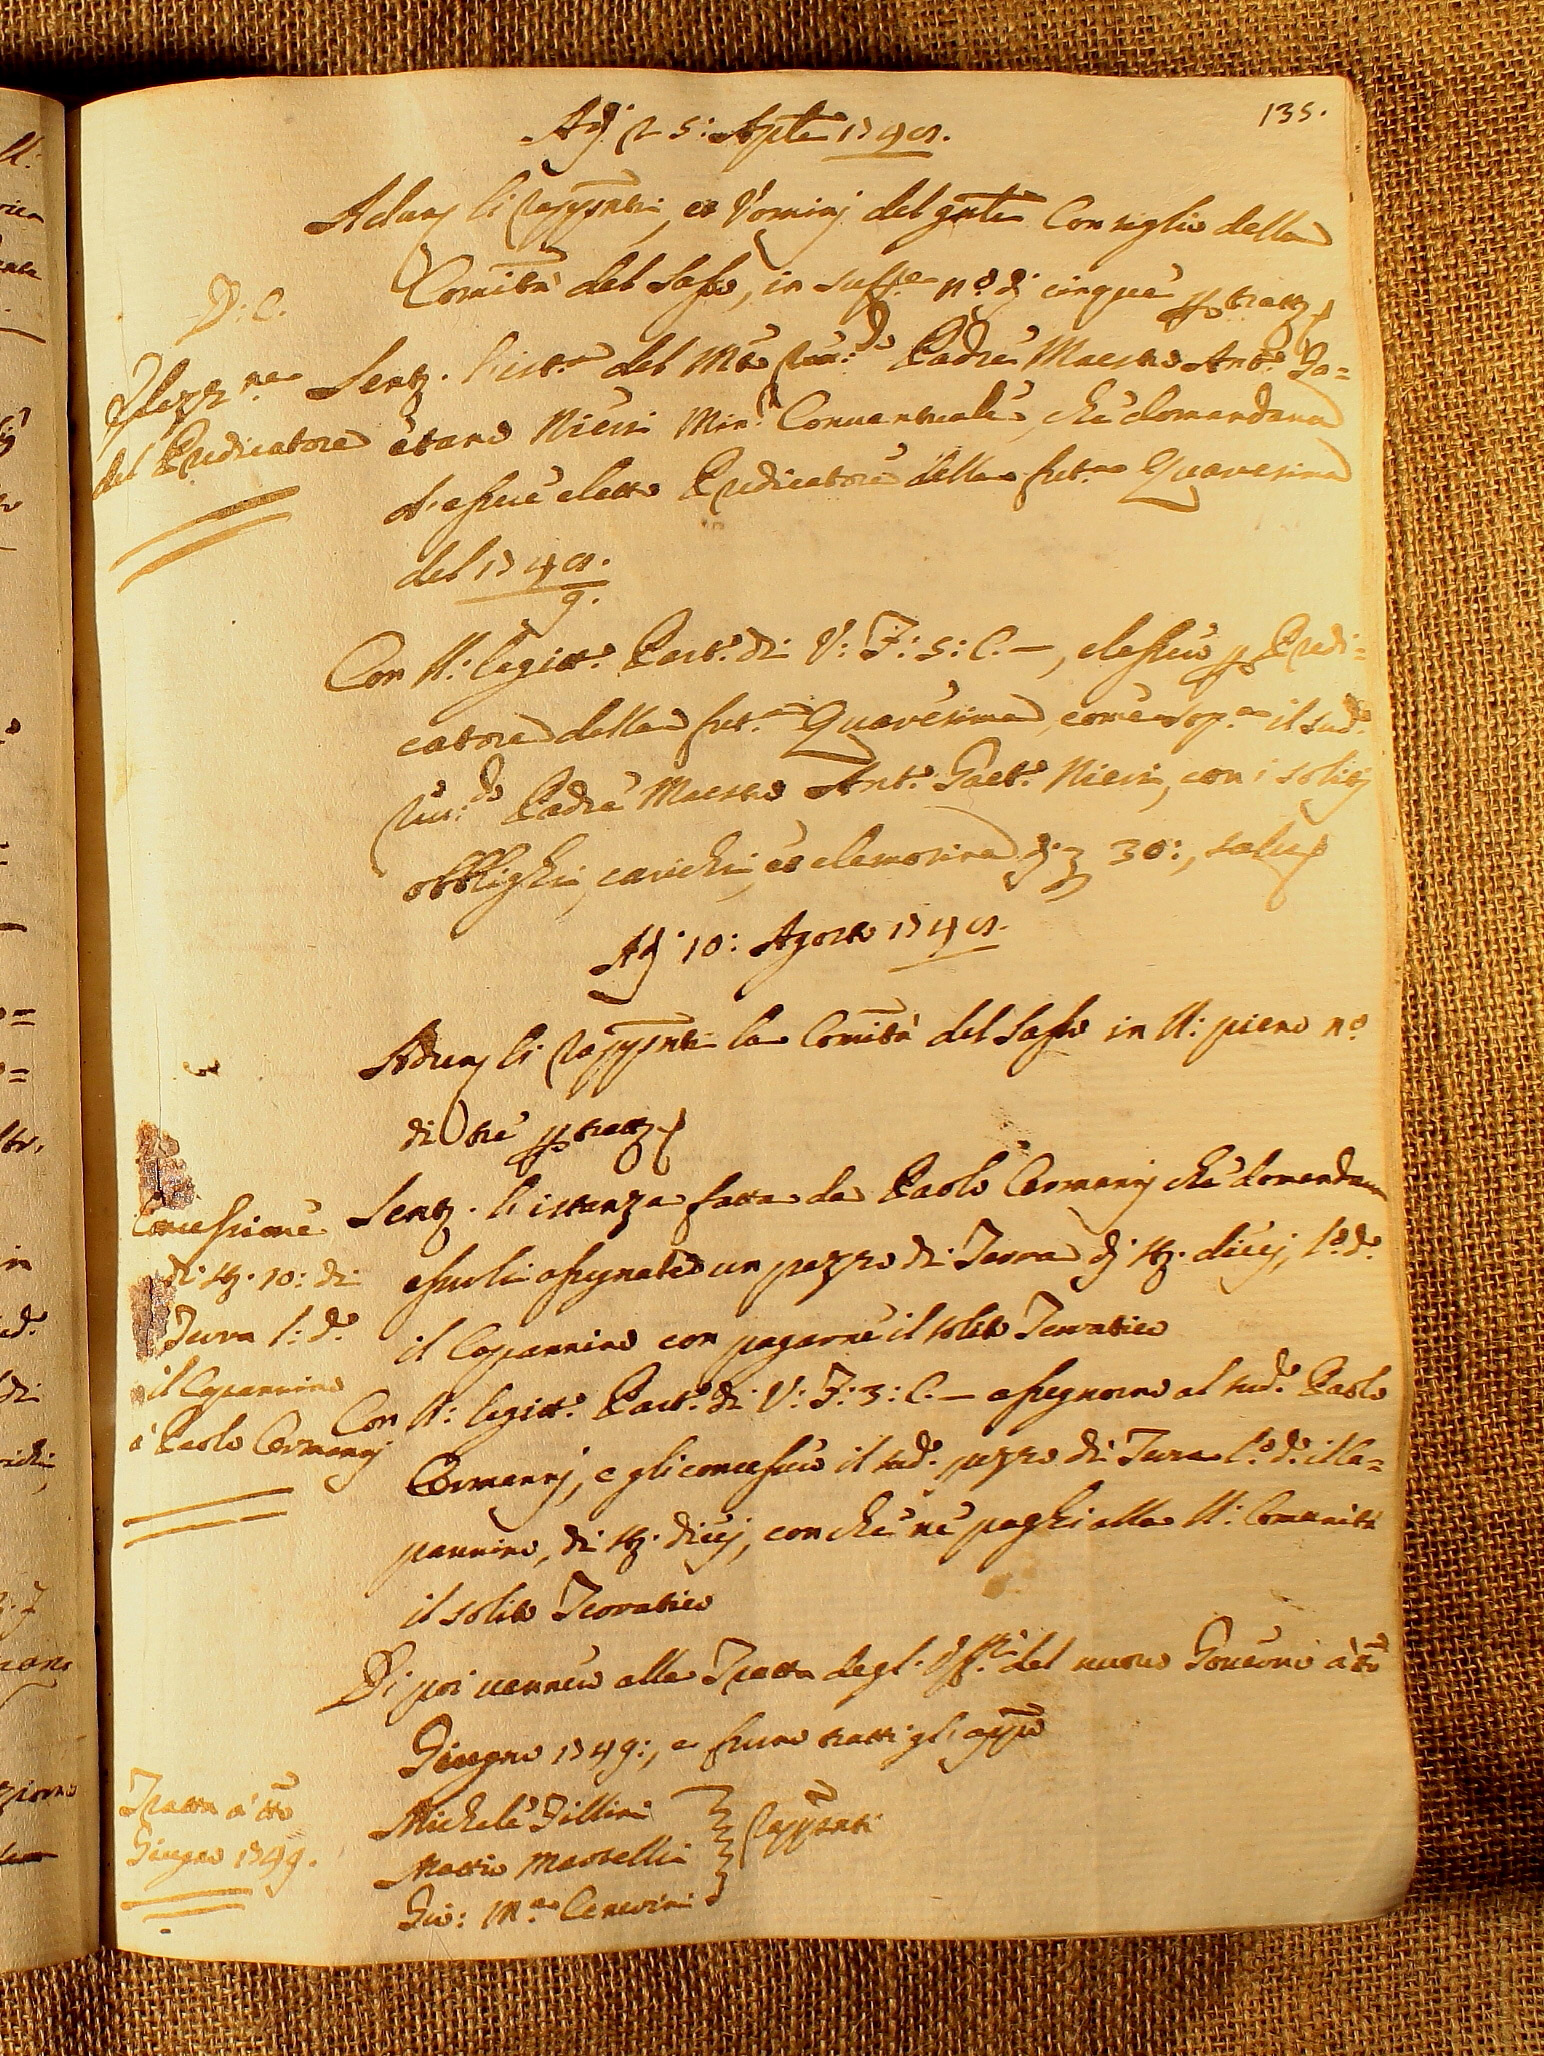 135.
Adj 25: Aple 1748.
Adunj li Rappsnti, et Vominj del gnle Consiglio della
Comità del Sasso, in suff.e n.o dj cinque p trattj
D: C.
Elezz.ne
del Predicatore
Sentj. l'ist.a del M.to Ru:do Padre Maestro Ant.o Ga=
etano Nieri Min: Conventuale, che domandava
d'essere eletto Predicatore della fut.a Quaresima
del 1748.
9.
Con ll: legitt.o Part.o di V: F: 5: C.—, elessero p Predi=
catore della fut.a Quaresima, come sop.a il sud.o
Ru:do Padre Maestro Ant.o Gaet.o Nieri, con i solitj
obblighi, carichi, et elemosina dj 30:, salvo
Adj 10: Agosto 1748.
Adunj li Rappsnti la Comità del Sasso in ll: pieno n.o
di trè p trattj
Concessione
di stj. 10: di
Terra l: d.o
il Capannino
à Paolo Cermannj
Sentj. l'istanza fatta da Paolo Cermannj che domandava
esserli assegnato un pezzo di Terra dj stj. diecj, l.o d.o
il Capannino con pagarne il solito Terratico
Con ll: legitt.o Part.o di V: F: 3: C.— assegnorno al sud.o Paolo
Cermannj, e gli concessero il sud.o pezzo di Terra l.o d.o il Ca=
pannino, di stj. diecj, con che ne paghi alla ll: Comunità
il solito Terratico
Di poi vennero alla Tratta degl' Uff.li del nuovo Governo à tto
Giugno 1749:, e furno tratti gl'appo
Tratta à tto
Giugno 1749.
Michele Fillini
Mattio Martelli
Gio: M.a Cenerini
Rappsnti